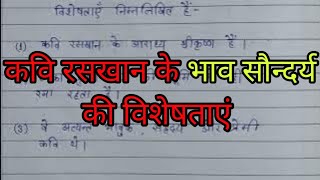 विशेषताएँ निम्नलिखित हैं:-
(1) कवि रसखान के आराध्य श्रीकृष्ण हैं।
कवि रसखान के भाव सौन्दर्य
की विशेषताएं
रमा रहता है।
(3) वे अत्यन्त भावुक, सहृदय और प्रेमी
कवि थे।